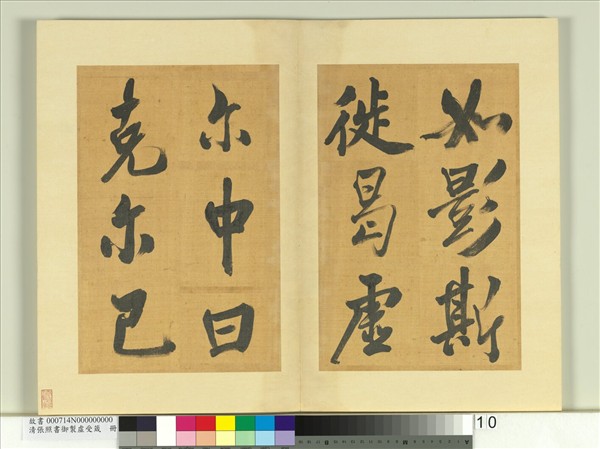 如影斯
徙曷虛
尔中曰
克尔己
故書 000714N000000000
清張照書御製虛受箴 冊
10